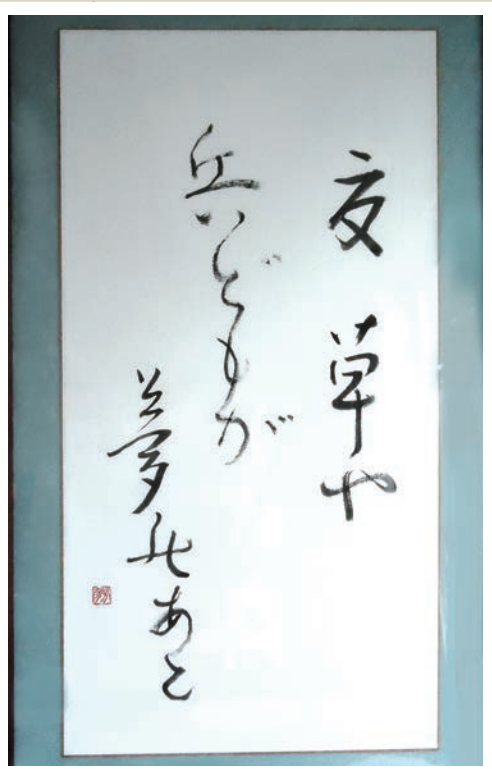 夏草や
兵どもが
夢のあと